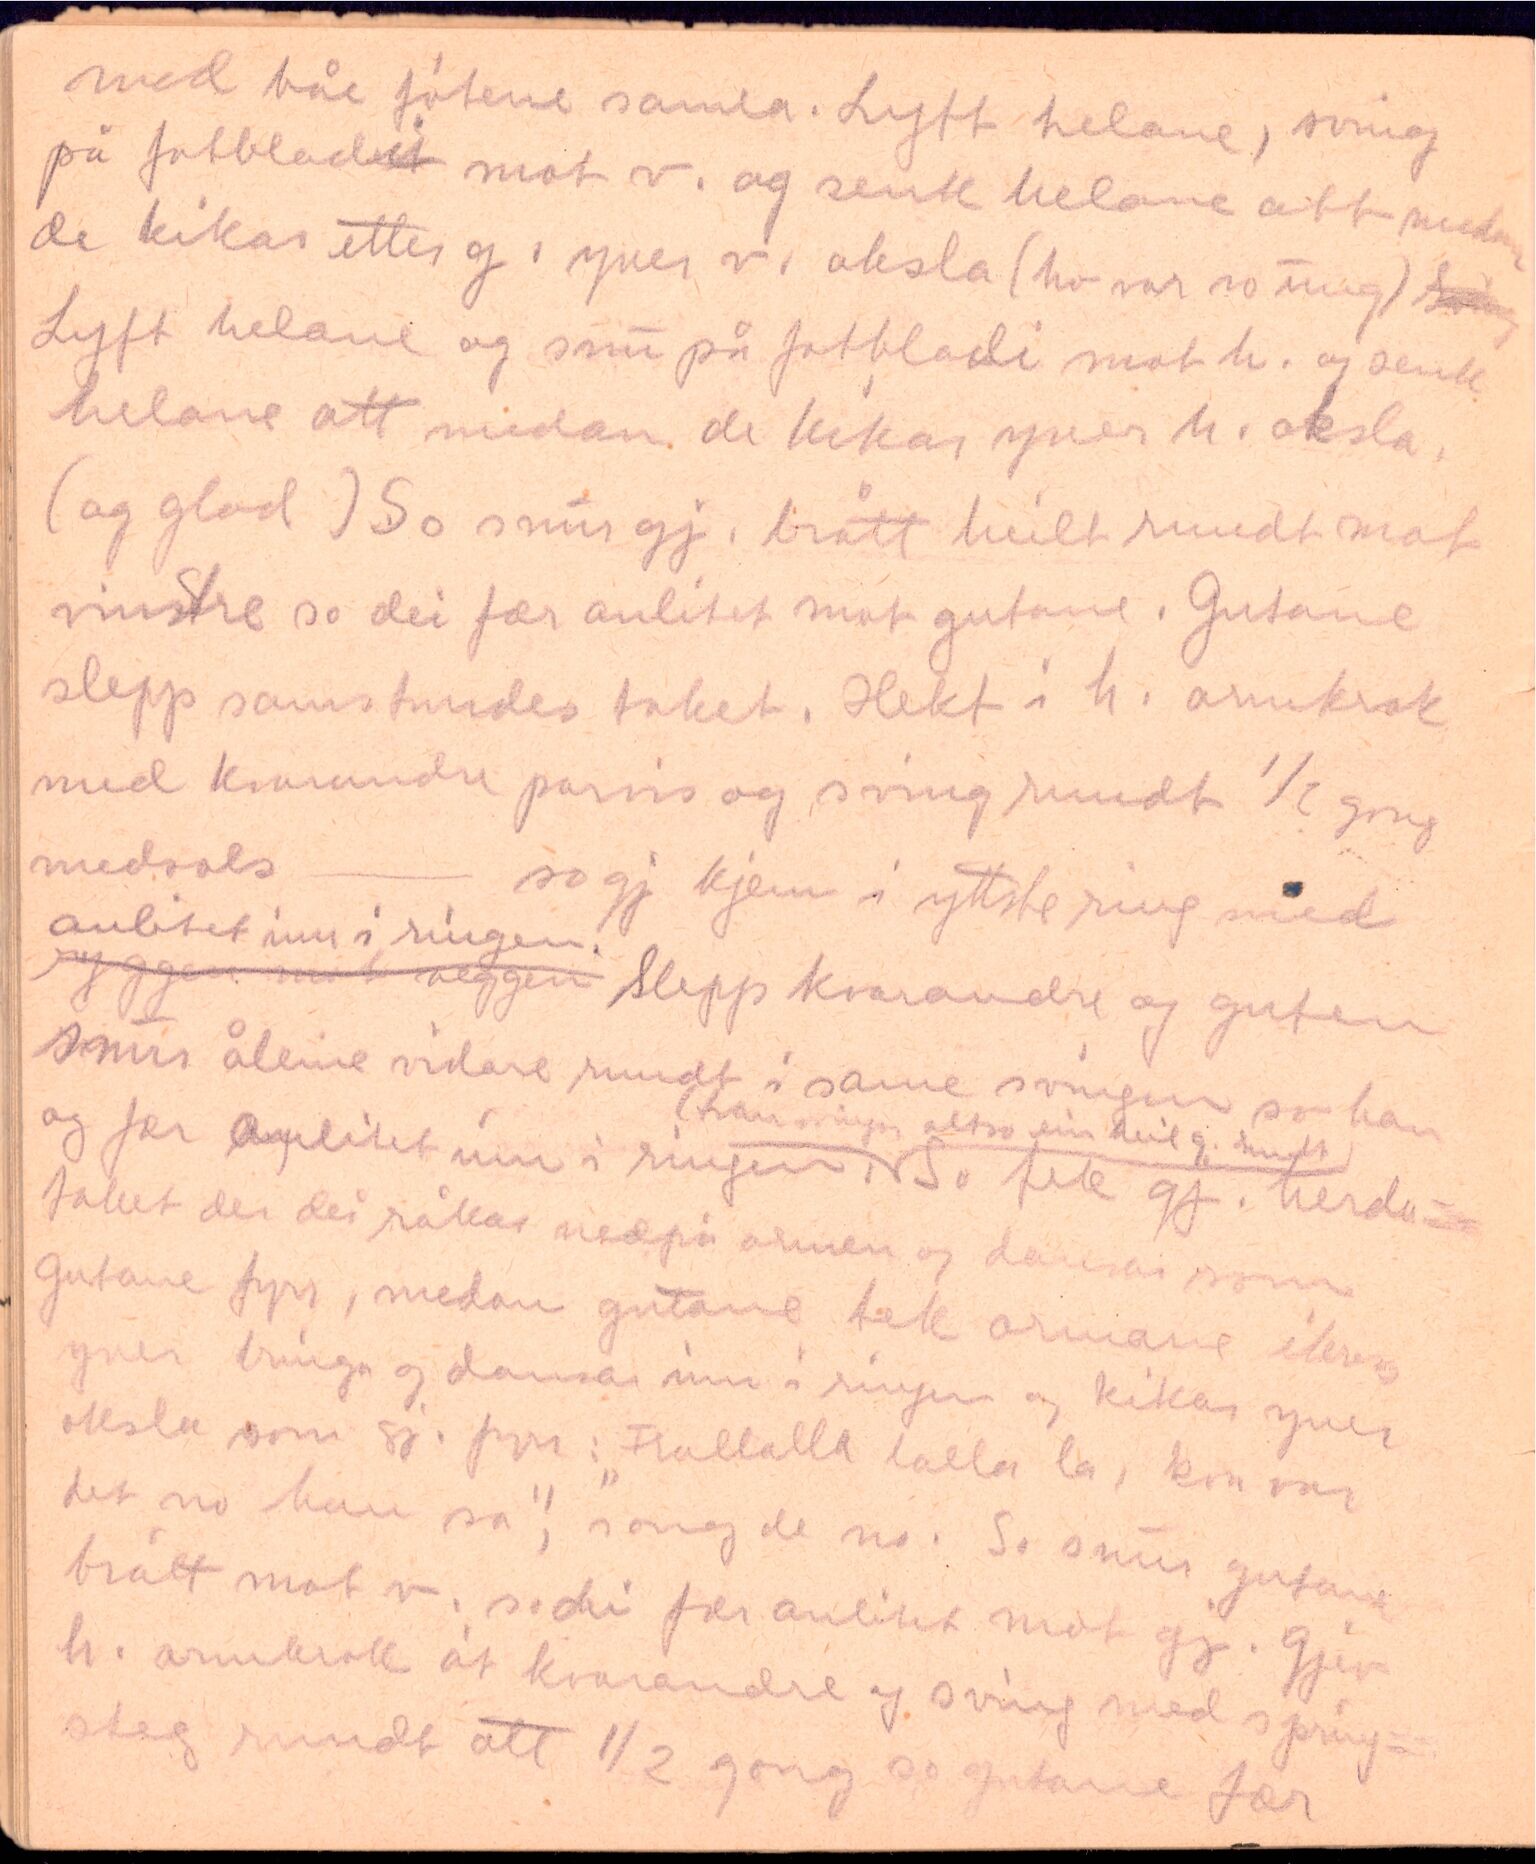 med båe føtene samla. Lyft helane, sving
på fotbladi mot v. og senk helane att medan
de kikar etter g. yver v. oksla (ho var so ung)
Lyft helane og snu på fotbladi mot h. og senk
helane att medan de kikar yver h. oksla.
(og glad) So snur gj. brått heilt rundt mot
vinstre so dei fær anlitet mot gutane. Gutane
slepp samstundes taket. Hekt i h. armkrok
med kvarandre parvis og sving rundt 1/2 gong
medsols so gj kjem i yttste ring med
anlitet inn i ringen.
ryggen mot veggen Slepp kvarandre og guten
snur åleine vidare rundt i same svingen so han
(han svinger altso ein heil g. rundt)
og fær anlitet inn i ringen. So tek gj. herda=
taket der dei råkar nedpå armen og dansar som
Gutane fyrr, medan gutane tek armane i kross
yver bringa og dansar inn i ringen og kikar yver
oksla som gj. fyrr: Trallalla lalla la, kva var
det no han sa", "song de no. So snur gutane
brått mot v. so dei fær anlitet mot gj. Gjev
h. armkrok åt kvarandre og sving med spring=
steg rundt att 1/2 gong so gutane fær